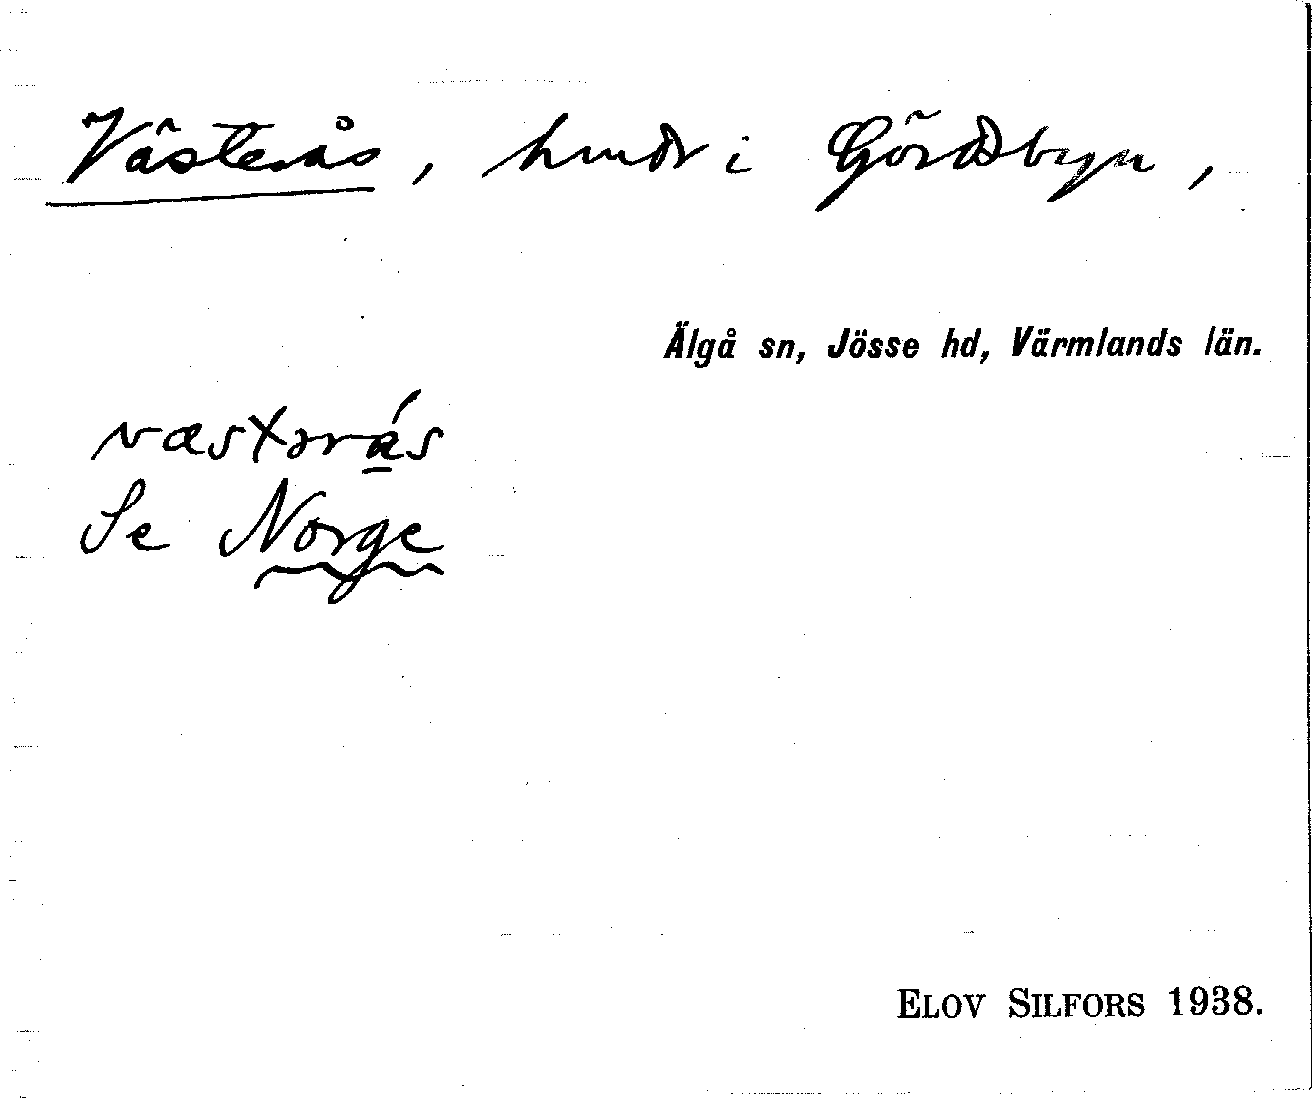 Västerås, hmdr i Gördsbyn,
Älgå sn, Jösse hd, Värmlands län.
væstərás
Se Norge
ELOV SILFORS 1938.